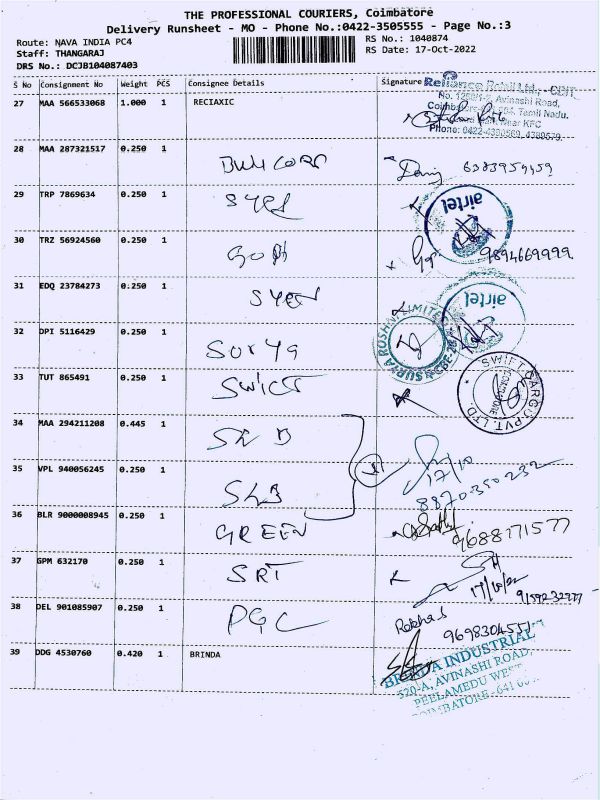 THE PROFESSIONAL COURIERS, Coimbatore
Delivery Runsheet - MO - Phone No.:0422-3505555 - Page No.:3
Route: NAVA INDIA PC4
RS No.: 1040874
Staff: THANGARAJ
RS Date: 17-Oct-2022
DRS No.: DCJB104087403
S No Consignment No Weight PCS Consignee Details Signature
Reliance Retail Ltd., CBIT
Avinashi Road,
Tamil Nadu.
Near KFC
27 MAA 566533068 1.000 1 RECIAXIC
28 MAA 287321517 0.250 1
29 TRP 7869634 0.250 1
airtel
30 TRZ 56924560 0.250 1 GOPI 9894669999
31 EDQ 23784273 0.250 1
airtel
32 DPI 5116429 0.250 1 Sorya
33 TUT 865491 0.250 1 SWIFT
SWIFT CARGO PVT. LTD.
34 MAA 294211208 0.445 1
17/10
35 VPL 940056245 0.250 1
8870350232
36 BLR 9000008945 0.250 1 GREEN 9688171577
37 GPM 632170 0.250 1 SRT
17/10/22
38 DEL 901085907 0.250 1
9698304551
39 DDG 4530760 0.420 1 BRINDA
BRINDA INDUSTRIAL
520-A, AVINASHI ROAD,
PEELAMEDU WEST
COIMBATORE - 641